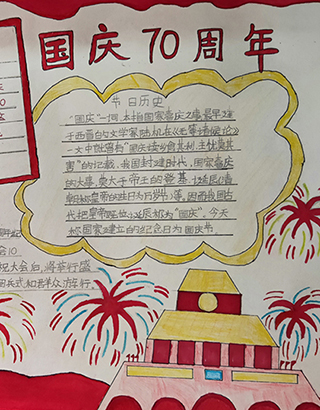 国庆70周年
节日历史
"国庆"一词,本指国家喜庆之事,最早见
于西晋的文学家陆机在《五等诸侯论》
一文中就曾有"国庆独飨其利,主忧莫其
害"的记载、我国封建时代,国家喜庆
的大事,莫大于帝王的登基、诞辰(清
朝称皇帝的生日为万岁节)等,因而我国古
代把皇帝即位、诞辰称为"国庆"。今天
称国家建立的纪念日为国庆节。
会10
祝大会后,将举行盛
阅兵式和群众游行,